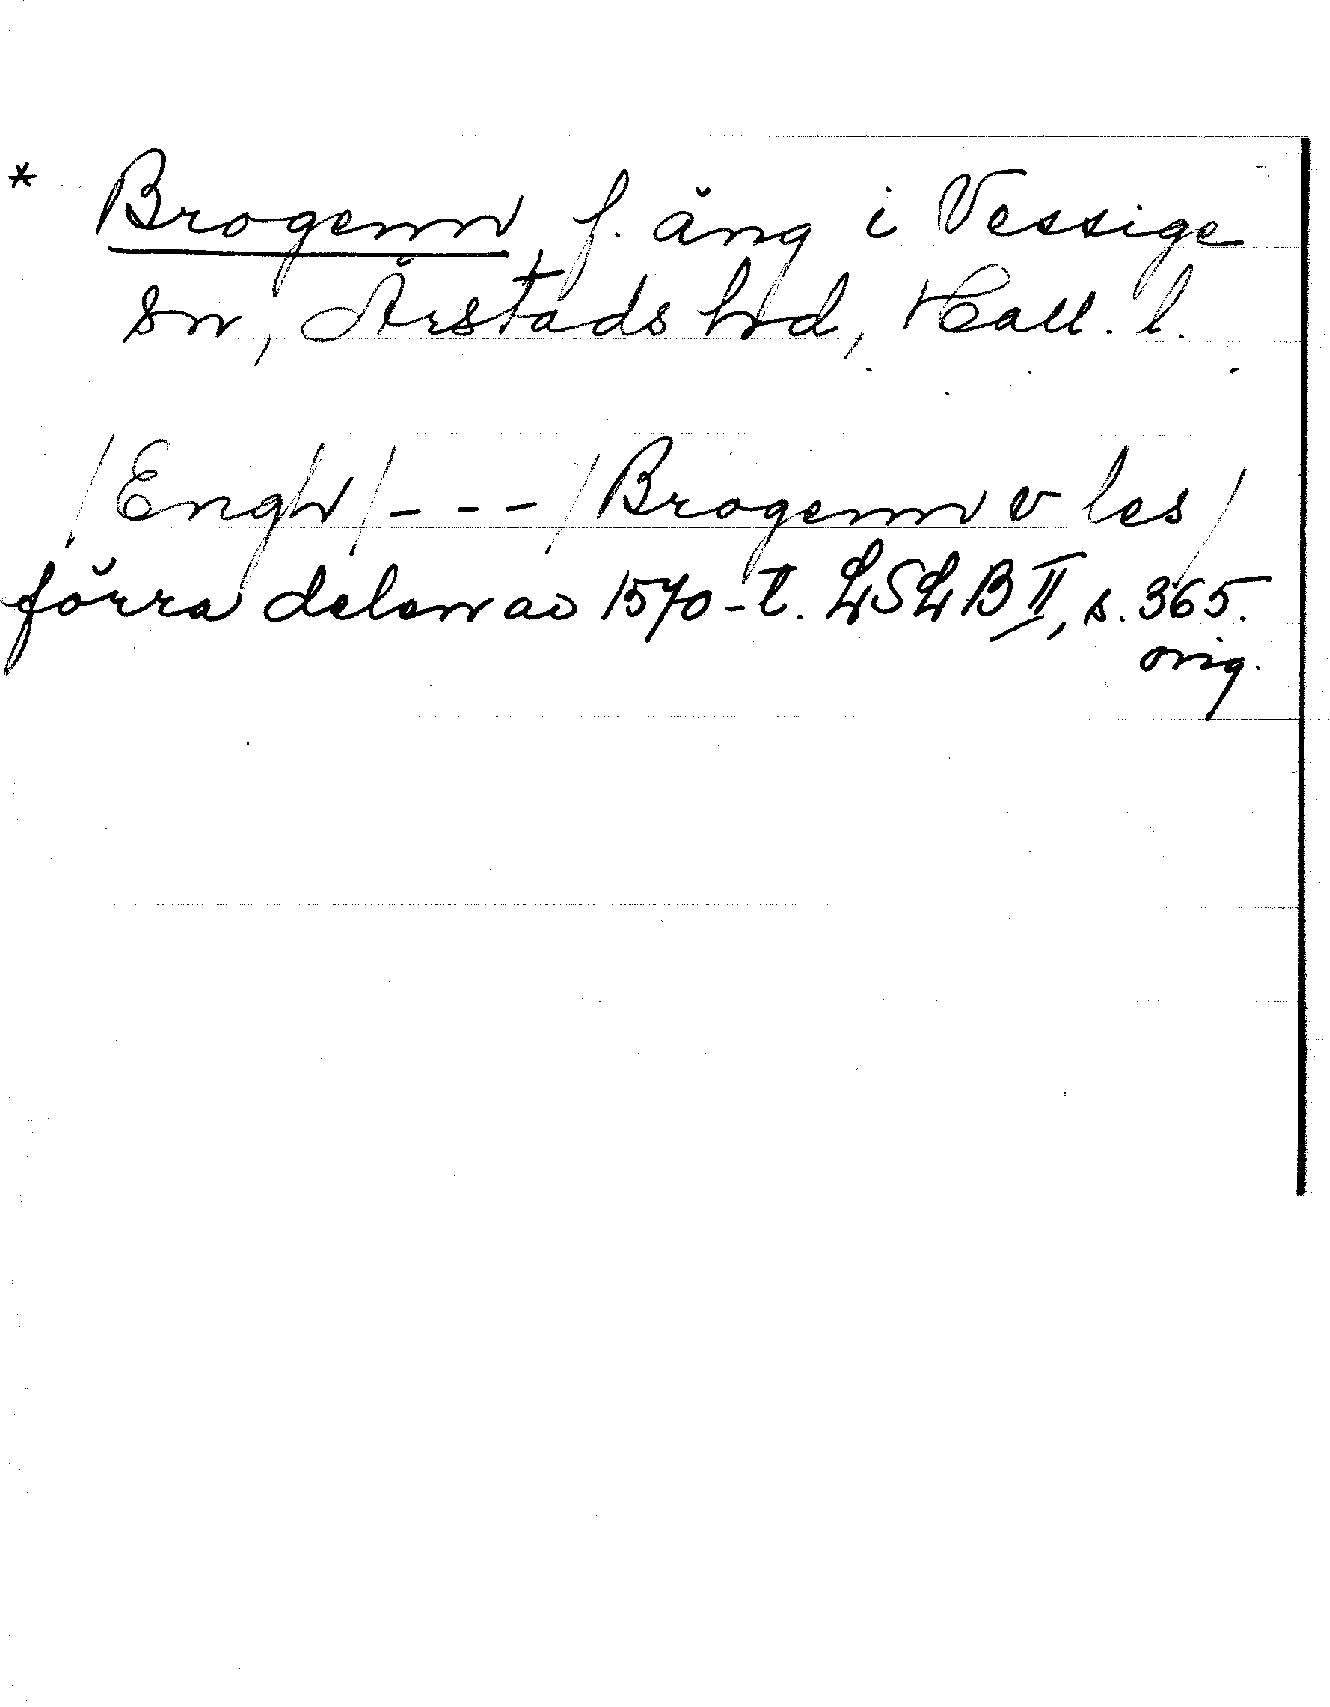 * Brogenn f. äng i Vessige
sn, Årstads hrd, Hall. l.
/Engh/ - - - /Brogenn v les/
förra delen av 1570-t. LSLB II, s. 365.
orig.